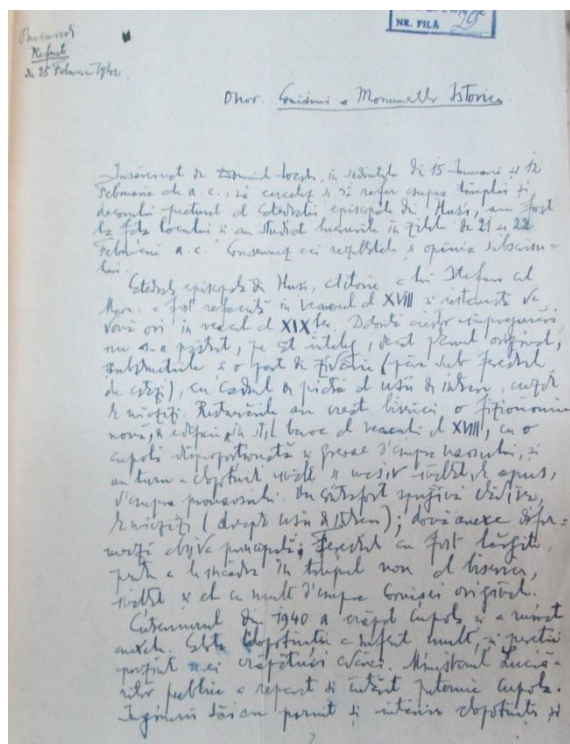 NR. FILĂ 25
București
Referat
din 25 Februarie 1942
Onor. Comisiuni a Monumentelor Istorice.
Însărcinat de Domniile-voastre, în ședințele din 15 Ianuarie și 12
Februarie a. c., să cercetez și să refer asupra tâmplei și
decorului pictural al Catedralei episcopale din Huși, am fost
la fața locului și am studiat lucrurile în zilele de 21 și 22
Februarie a.c. Consemnez aci rezultatele și opinia subscrisu-
lui.
Catedrala episcopală din Huși, ctitorie a lui Ștefan cel
Mare, a fost refăcută în veacul al XVIII și restaurată de
două ori în veacul al XIX lea. Datorită acestor împrejurări,
nu s-a păstrat, pe cât înțeleg, decât planul original,
substructurile și o parte din zidărie (până sub ferestrele
de astăzi), cu cadrul de piatră al ușii de intrare,
de miazăzi. Restaurările au creat bisericii o fizionomie
nouă, de edificiu în stil baroc al veacului al XVIII, cu o
cupolă disproporționată și greoaie d'asupra naosului, și
un turn-clopotniță înalt și masiv de apus,
d'asupra pronaosului. Un contrafort sprijină clădirea,
la miazăzi (lângă ușa de intrare); două anexe difor-
mează absida principală; ferestrele au fost lărgite,
pentru a lumina în timpul nou al bisericii,
înălțat și el cu mult d'asupra cornișei originale.
Cutremurul din 1940 a crăpat cupola și a ruinat
anexele. Clopotniței a suferit mult, și pereții
prezintă și ei crăpături adânci. Ministerul Lucră-
rilor publice a reparat și întărit puternic cupola.
Inginerii săi au pornit și întărirea clopotniței și